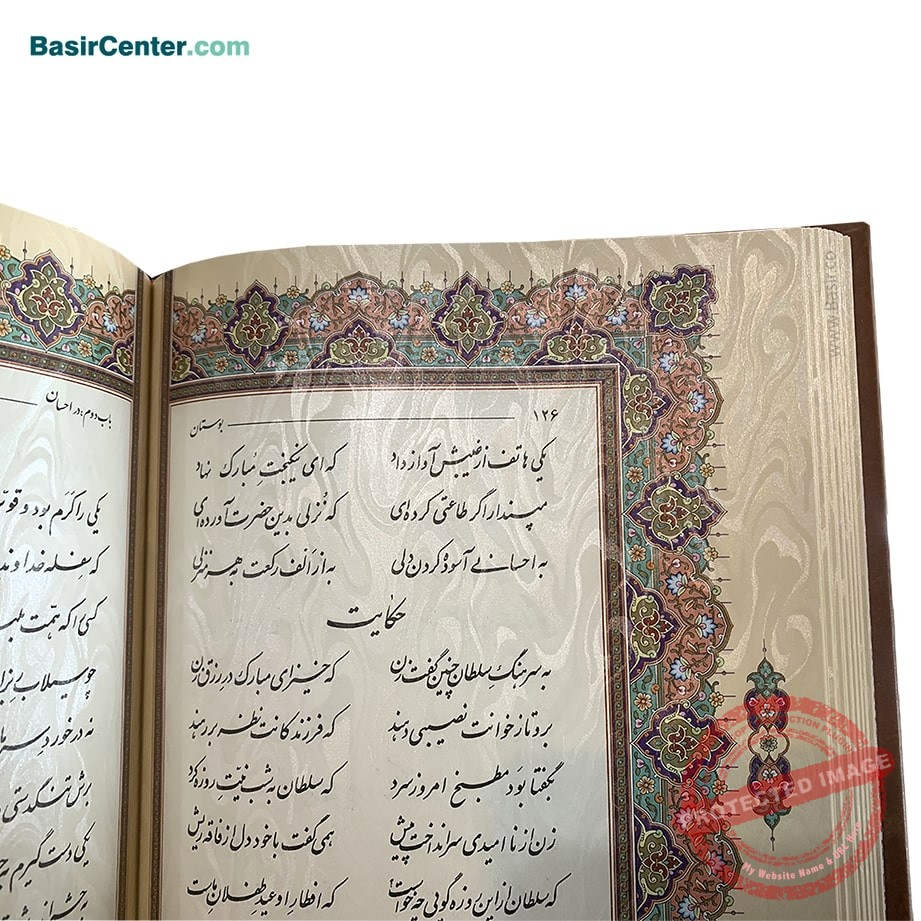 BasirCenter.com
www.Basir.co
۱۲۶ بوستان
یکی هاتف از غیبش آواز داد که ای نیکبخت مبارک نهاد
مپندار اگر طاعتی کرده‌ای که نُزلی بدین حضرت آورده‌ای
به احسانی آسوده کردن دلی به از اَلف رکعت به هر منزلی
حکایت
به سرهنگ سلطان چنین گفت زن که خیز ای مبارک در رزق زن
برو تا ز خوانت نصیبی دهند که فرزندکانت به سختی درند
بگفتا بود مطبخ امروز سرد که سلطان به شب نیّت روزه کرد
زن از ناامیدی سر انداخت پیش همی گفت با خود دل از فاقه ریش
که سلطان از این روزه گویی چه خواست که افطار او عید طفلان ماست
باب دوم: در احسان
یکی را کَرَم بود و قوّت
که سِفله خداوند
کسی را که همّت بلند
چو سیلاب ریزان
نه در خورد سرمایه
برش تنگدستی
یکی دست گیرم به
PROTECTED IMAGE
My Website Name & Url Web